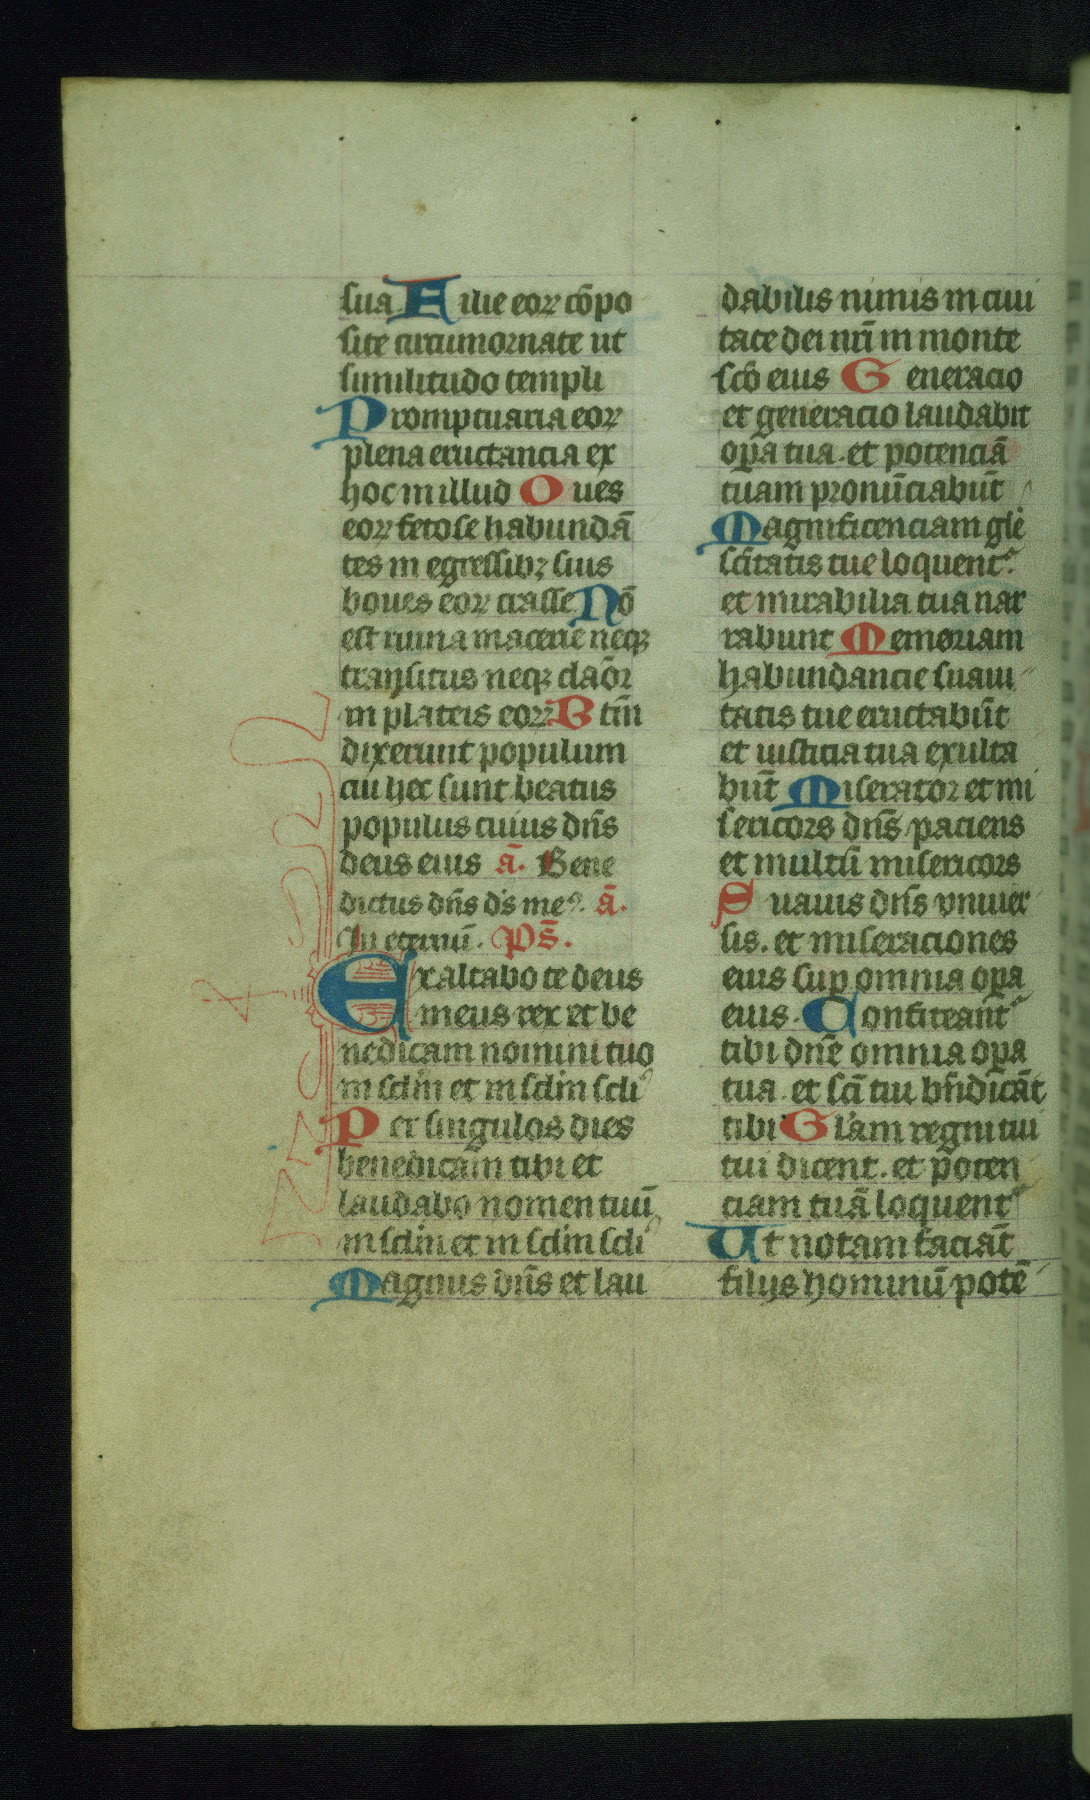 sua Filie eoꝝ cōpo
site circumornate ut
similitudo templi
Promptuaria eoꝝ
plena eructancia ex
hoc in illud Oues
eoꝝ fetose habundā
tes in egressibꝫ suis
boues eoꝝ crasse Nō
est ruina macerie neqꝫ
transitus neqꝫ claōr
in plateis eoꝝ Btīn
dixerunt populum
cui hec sunt beatus
populus cuius dn̄s
deus eius ā. Bene
dictus dn̄s ds̄ meꝰ. ā.
In eternū. Ps̄.
Exaltabo te deus
meus rex et be
nedicam nomini tuo
in sclm̄ et in sclm̄ scli
Per singulos dies
benedicam tibi et
laudabo nomen tuū
in sclm̄ et in sclm̄ scli
Magnus dn̄s et lau
dabilis nimis in ciui
tate dei nrī in monte
scō eius Generacio
et generacio laudabit
oꝑa tua. et potenciā
tuam pronūciabūt
Magnificenciam glē
scītatis tue loquent᷑.
et mirabilia tua nar
rabunt Memoriam
habundancie suaui
tatis tue eructabūt
et iusticia tua exulta
būt Miserator et mi
sericors dn̄s paciens
et multū misericors
Suauis dn̄s vniuer
sis. et miseraciones
eius suꝑ omnia oꝑa
eius. Confiteant᷑
tibi dnē omnia oꝑa
tua. et scī tui bn̄dicāt
tibi Glām regni tui
tui dicent. et poten
ciam tuā loquent᷑
Ut notam faciāt
filijs hominū potē